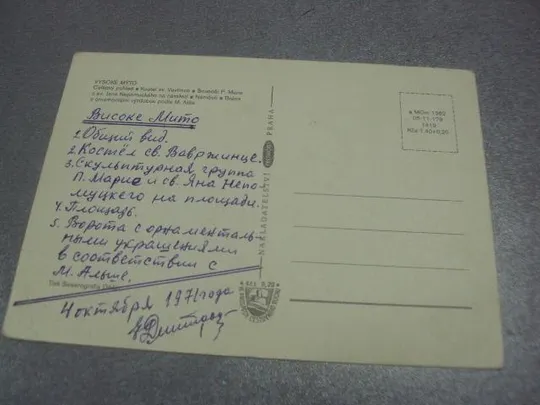 VYSOKÉ MÝTO
Celkový pohled • Kostel sv. Vavřince • Sousoší P. Marie
a sv. Jana Nepomuckého na náměstí • Náměstí •
s ornamentální výzdobou podle M. Alše
Високе Мито
1. Общий вид.
2. Костёл св. Вавржинце.
3. Скульптурная группа
П. Марие и св. Яна Непо
муцкего на площади.
4. Площадь.
5. Ворота с орнаменталь-
ными украшениями
в соответствии с
М. Альше.
Tisk Severografia
4 октября 1971 года
NAKLADATELSTVÍ
PRAHA
Kčs 0,20